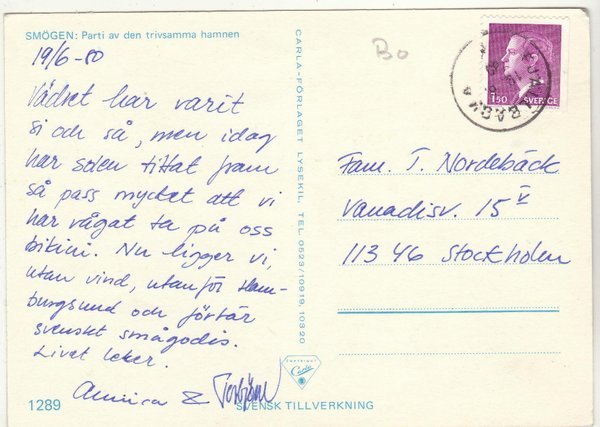 SMÖGEN: Parti av den trivsamma hamnen
19/6-80
Vädret har varit
si och så, men idag
har solen tittat fram
så pass mycket att vi
har vågat ta på oss
bikini. Nu ligger vi,
utan vind, utanför Ham-
burgsund och förtär
svenskt smågodis.
Livet leker.
Annica & Torbjörn
1289
SVENSK TILLVERKNING
CARLA-FÖRLAGET LYSEKIL, TEL 0523/10919, 103 20
Carla
Bo
1.50 SVERIGE
Fam. T. Nordebäck
Vanadisv. 15 V
113 46 Stockholm